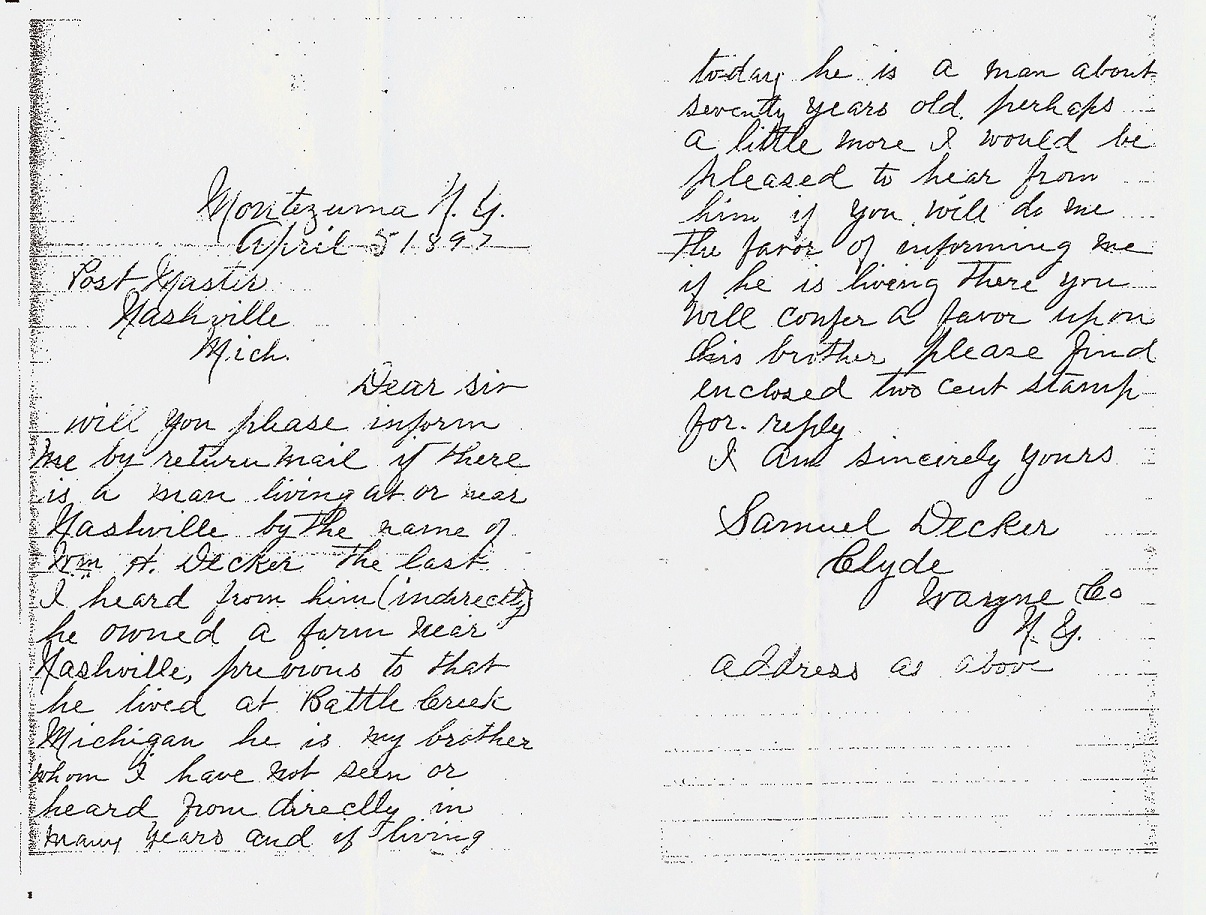 Montezuma N.Y.
April 5 1897
Post Master
Nashville
Mich.
Dear sir
will you please inform
me by return mail if there
is a man living at or near
Nashville by the name of
Wm H. Decker the last
I heard from him (indirectly)
he owned a farm near
Nashville, previous to that
he lived at Battle Creek
Michigan he is my brother
whom I have not seen or
heard from directly in
many years and if living
today he is a man about
seventy years old. perhaps
a little more I would be
pleased to hear from
him if you will do me
the favor of informing me
if he is liveing there you
will confer a favor upon
his brother please find
enclosed two cent stamp
for. reply
I am sincerely yours
Samuel Decker
Clyde
Wayne Co
N.Y.
address as above